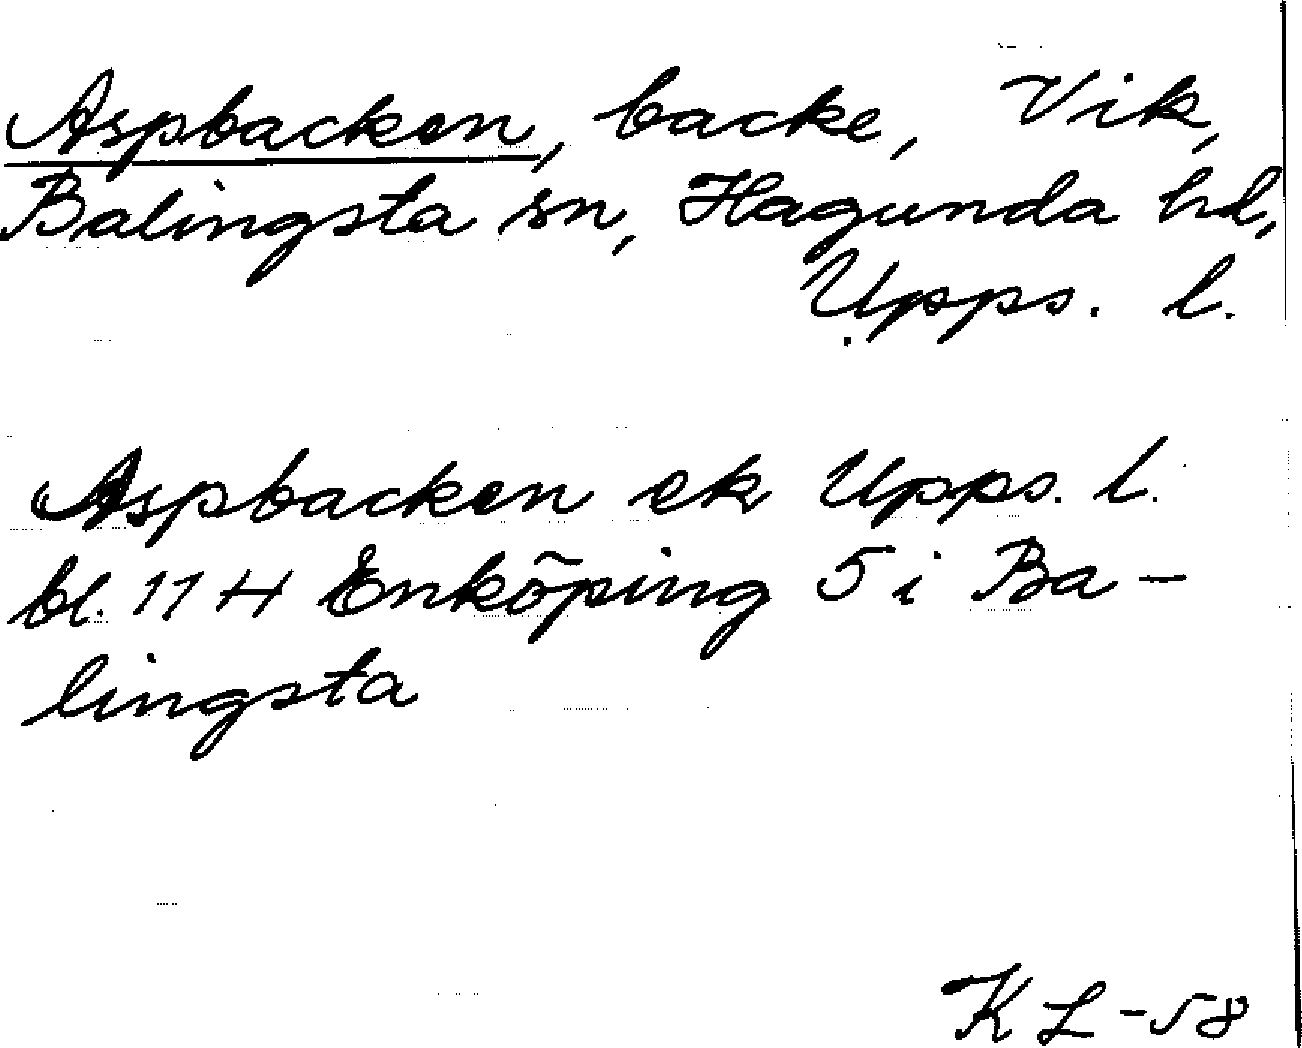 Aspbacken, backe, Vik,
Balingsta sn, Hagunda hd,
Upps. l.
Aspbacken ek Upps. l.
bl. 11 H Enköping 5 i Ba-
lingsta
KL-58